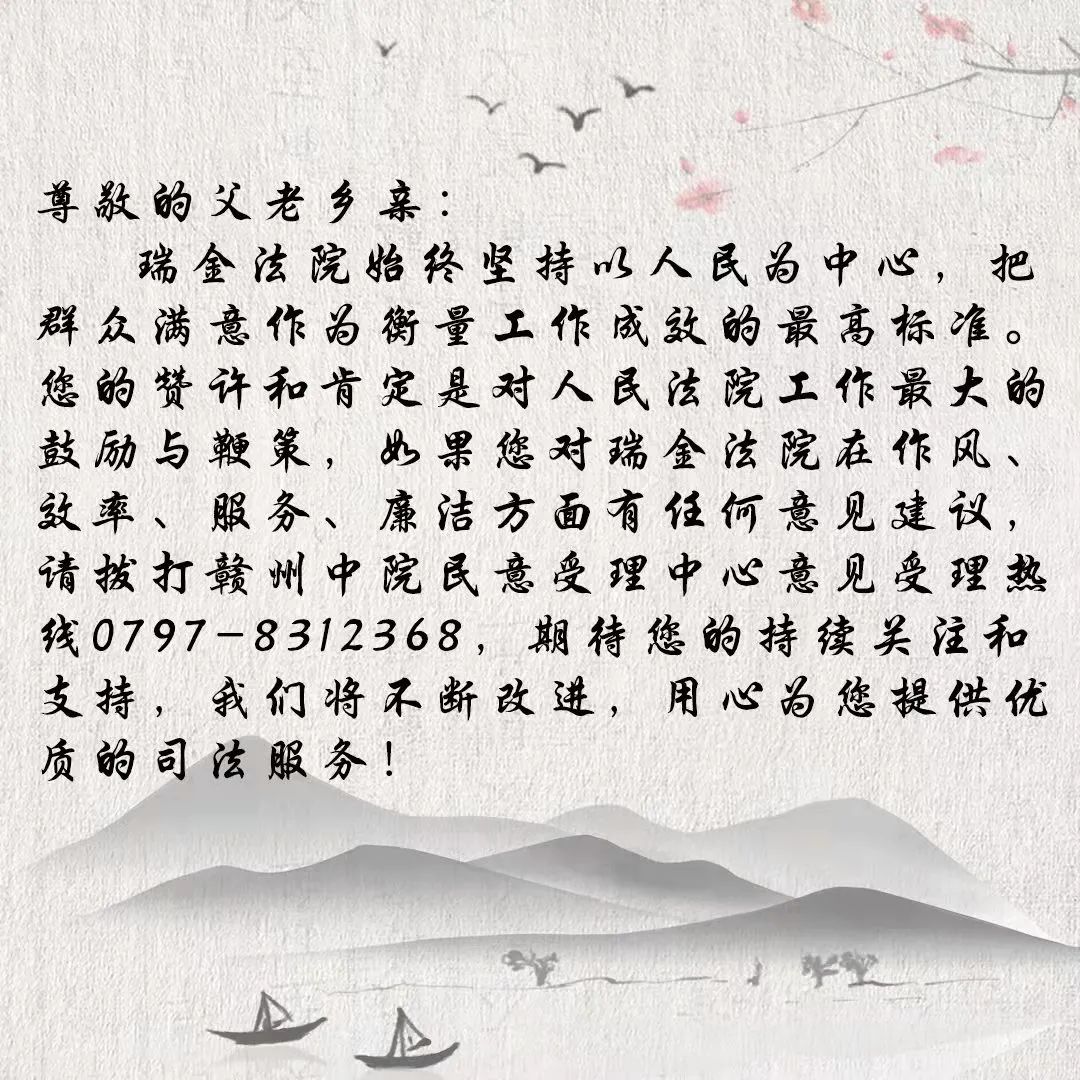 尊敬的父老乡亲：
瑞金法院始终坚持以人民为中心，把
群众满意作为衡量工作成效的最高标准。
您的赞许和肯定是对人民法院工作最大的
鼓励与鞭策，如果您对瑞金法院在作风、
效率、服务、廉洁方面有任何意见建议，
请拨打赣州中院民意受理中心意见受理热
线0797-8312368，期待您的持续关注和
支持，我们将不断改进，用心为您提供优
质的司法服务！